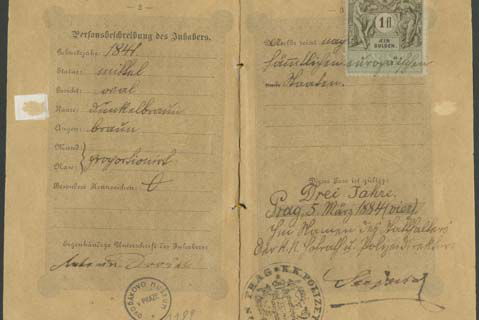 - 2 -
Personsbeschreibung des Inhabers.
Geburtsjahr: 1841
Statur: mittel
Gesicht: oval
Haare: dunkelbraun
Augen: braun
Mund:
Nase:
proportionirt
Besondere Kennzeichen: 0
Eigenhändige Unterschrift des Inhabers:
MUZEUM
PRAZE
1 fl
EIN
GULDEN
reist nach
sämmtlichen europäischen
Staaten.
Dieser Pass ist gültig:
Drei Jahre.
Prag, 5. März 1884 (vier)
Im Namen des Statthalters
Der k. k. Hofrath u. Polizeidirektor
PRAG
K.K. POLIZEI